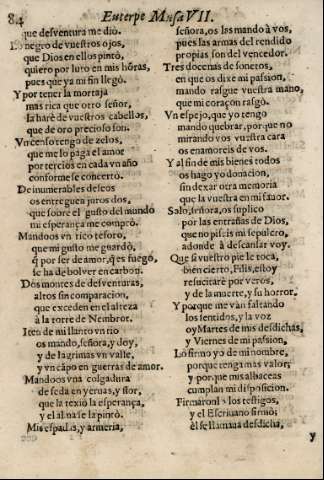 84 Euterpe Musa VII.
que desventura me diò.
Lo negro de vuestros ojos,
que Dios en ellos pintò,
quiero por luto en mis hōras,
pues que ya mi fin llegò.
Y por tener la mortaja
mas rica que otro señor,
la harè de vuestros cabellos,
que de oro precioso son.
Vn censo tengo de zelos,
que me lo paga el amor
por tercios en cada vn año
conforme se concertò.
De inumerables deseos
os entreguen juros dos,
que sobre el gusto del mundo
mi esperança me comprò.
Mandoos vn rico tesoro,
que mi gusto me guardò,
q̄ por ser de amor, q̄ es fuego,
se ha de bolver en carbon.
Dos montes de desventuras,
altos sin comparacion,
que exceden en el alteza
à la torre de Nembrot.
Iten de mi llanto vn rio
os mando, señora, y doy,
y de lagrimas vn valle,
y vn cāpo en guerras de amor.
Mandoos vna colgadura
de seda en yeruas, y flor,
que la texiò la esperança,
y el alma se la pintò.
Mis espadas, y armeria,
señora, os las mando à vos,
pues las armas del rendido
propias son del vencedor.
Tres docenas de sonetos,
en que os dixe mi passion,
mando rasgue vuestra mano,
que mi coraçon rasgò.
Vn espejo, que yo tengo
mando quebrar, porque no
mirando vos vuestra cara
os enamoreis de vos.
Y al fin de mis bienes todos
os hago yo donacion,
sin dexar otra memoria
que la vuestra en mi fauor.
Solo, señora, os suplico
por las entrañas de Dios,
que no piseis mi sepulcro,
adonde à descansar voy.
Que si vuestro pie le toca,
bien cierto, Filis, estoy
resucitarè por veros,
y de la muerte, y su horror.
Y porque me van faltando
los sentidos, y la voz
oy Martes de mis desdichas,
y Viernes de mi passion,
Lo firmo yo de mi nombre,
porque tenga mas valor,
y porque mis albaceas
cumplan mi disposicion.
Firmaronlo los testigos,
y el Escriuano firmò;
èl se llamaua desdicha,
y